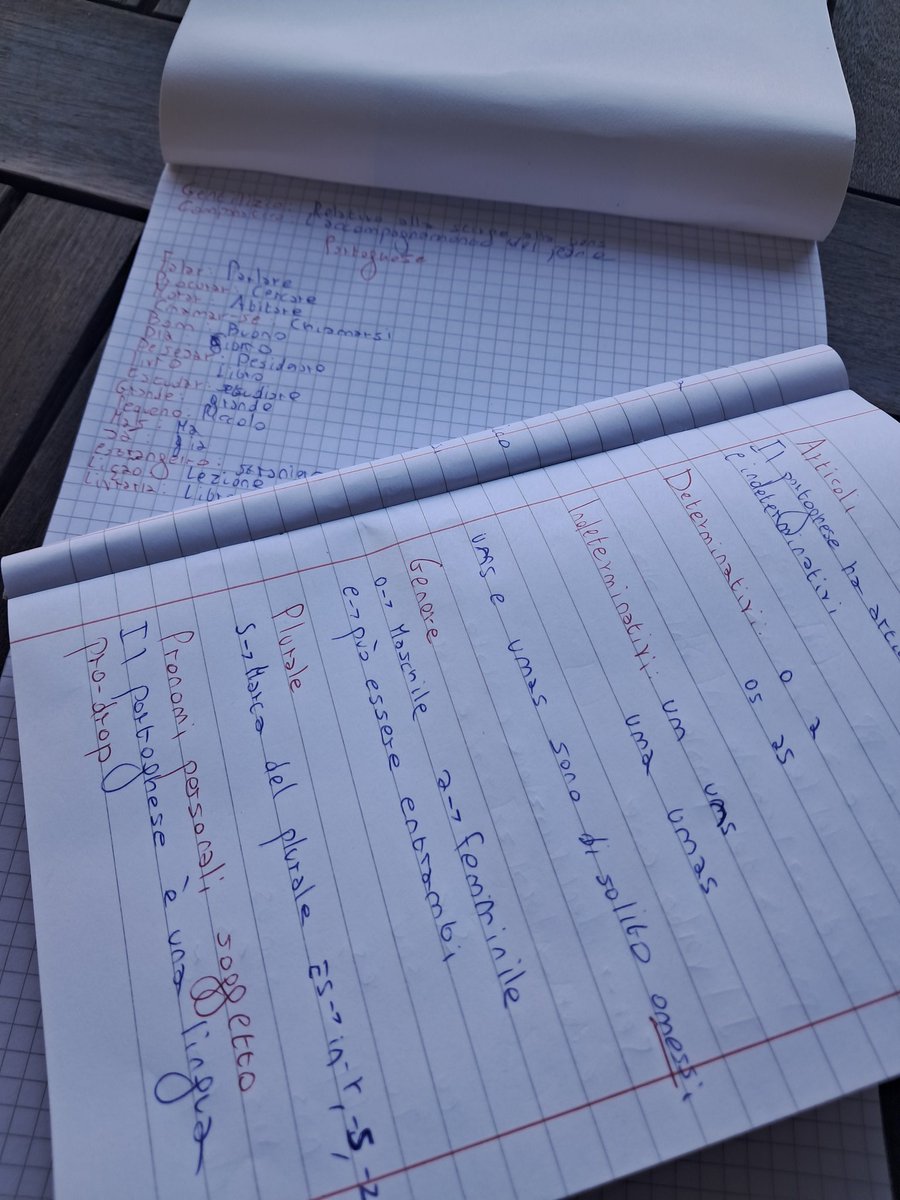 Gentilizio: Relativo alla
Companatico: accompagnamento del pane
Portoghese
Falar: Parlare
Procurar: Cercare
Morar: Abitare
Chamar-se: Chiamarsi
Bom: Buono
Dia:
Desejar: Desidare
Livro: Libro
Estudar: Studiare
Grande: grande
Pequeno: Piccolo
Mas: Ma
Já: già
Estrangeiro:
Lição: Lezione
Livraria:
Articoli
Il portoghese ha
e indeterminativi
Determinativi: o a
os as
Indeterminativi: um ums
uma umas
ums e umas sono di solito omessi
Genere
o→ Maschile a→ femminile
e→ può essere entrambi
Plurale
S→ Marca del plurale ES→ in -r, -s, -z
Pronomi personali soggetto
Il portoghese è una lingua
pro-drop